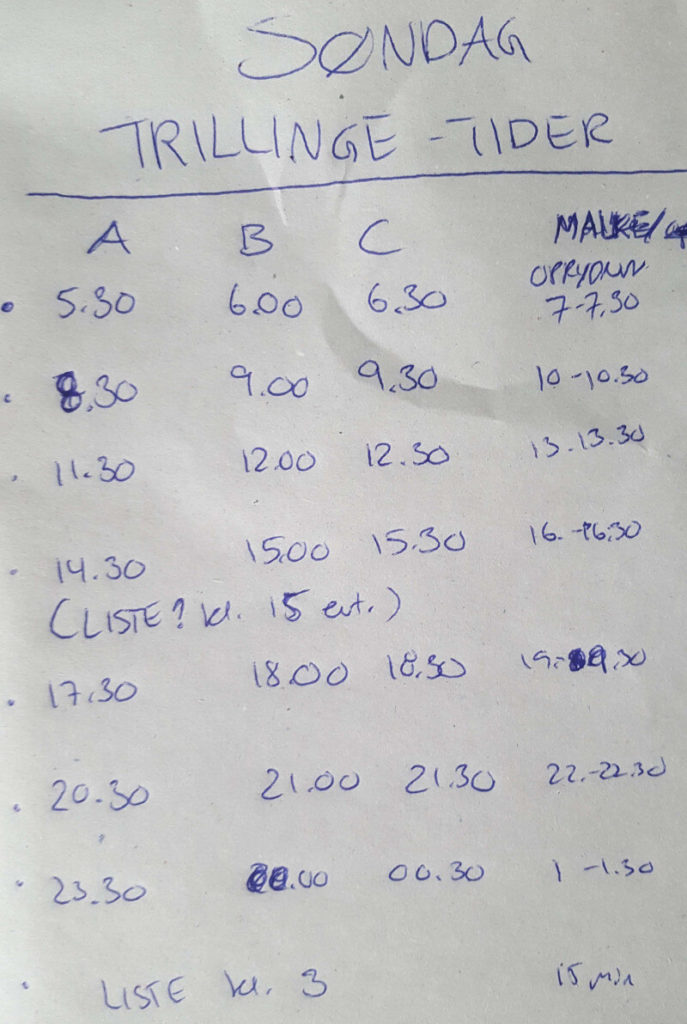 SØNDAG
TRILLINGE - TIDER
A B C MALKE/
OPRYDNN.
5.30 6.00 6.30 7-7.30
8.30 9.00 9.30 10-10.30
11.30 12.00 12.30 13.-13.30
14.30 15.00 15.30 16.-16.30
(LISTE? kl. 15 evt.)
17.30 18.00 18.30 19.-19.30
20.30 21.00 21.30 22.-22.30
23.30 00.00 00.30 1-1.30
LISTE kl. 3 15 min